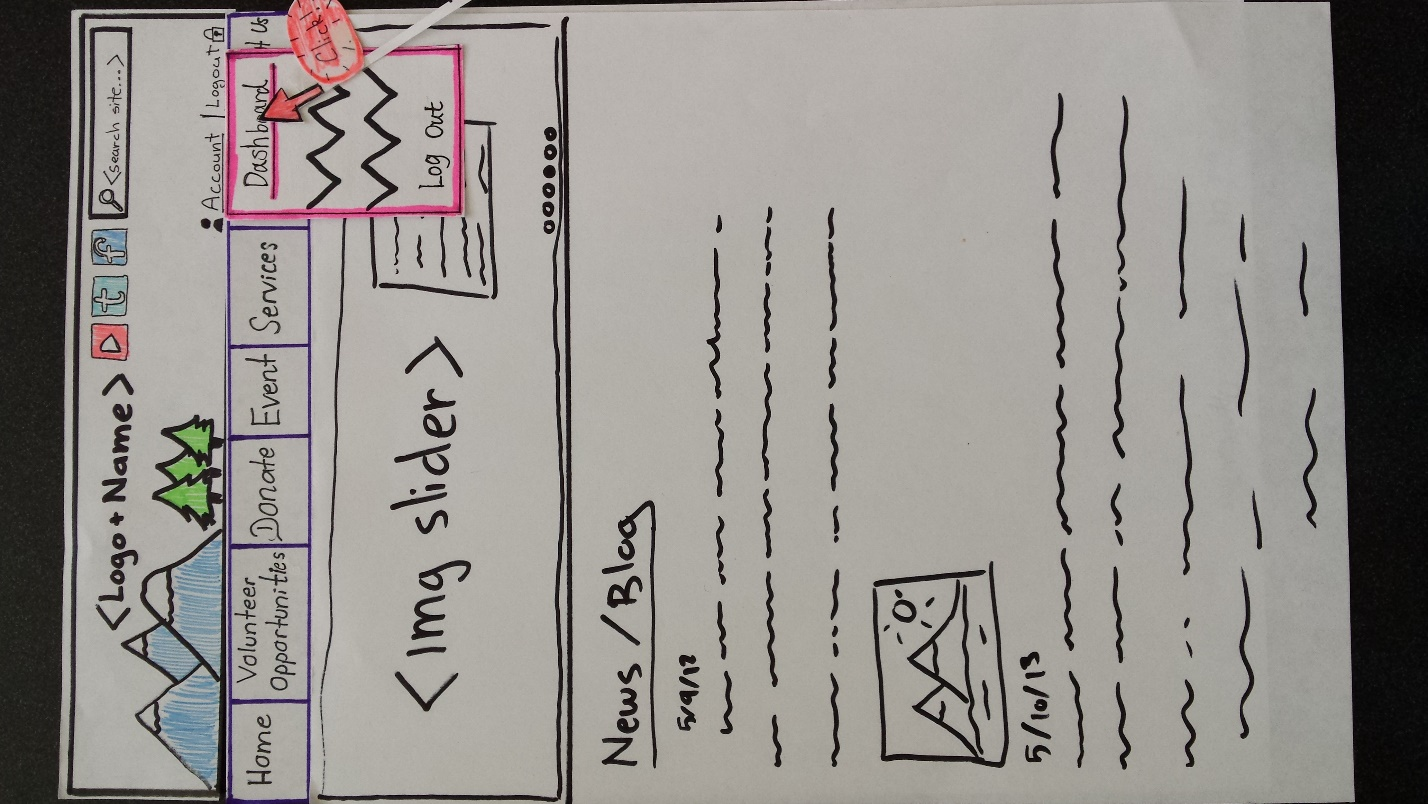 <Logo + Name>
<search site...>
t
f
Account | Logout
Home
Volunteer
Opportunities
Donate
Event
Services
Us
Click!
Dashboard
Log Out
<Img slider>
News / Blog
5/9/12
5/10/13